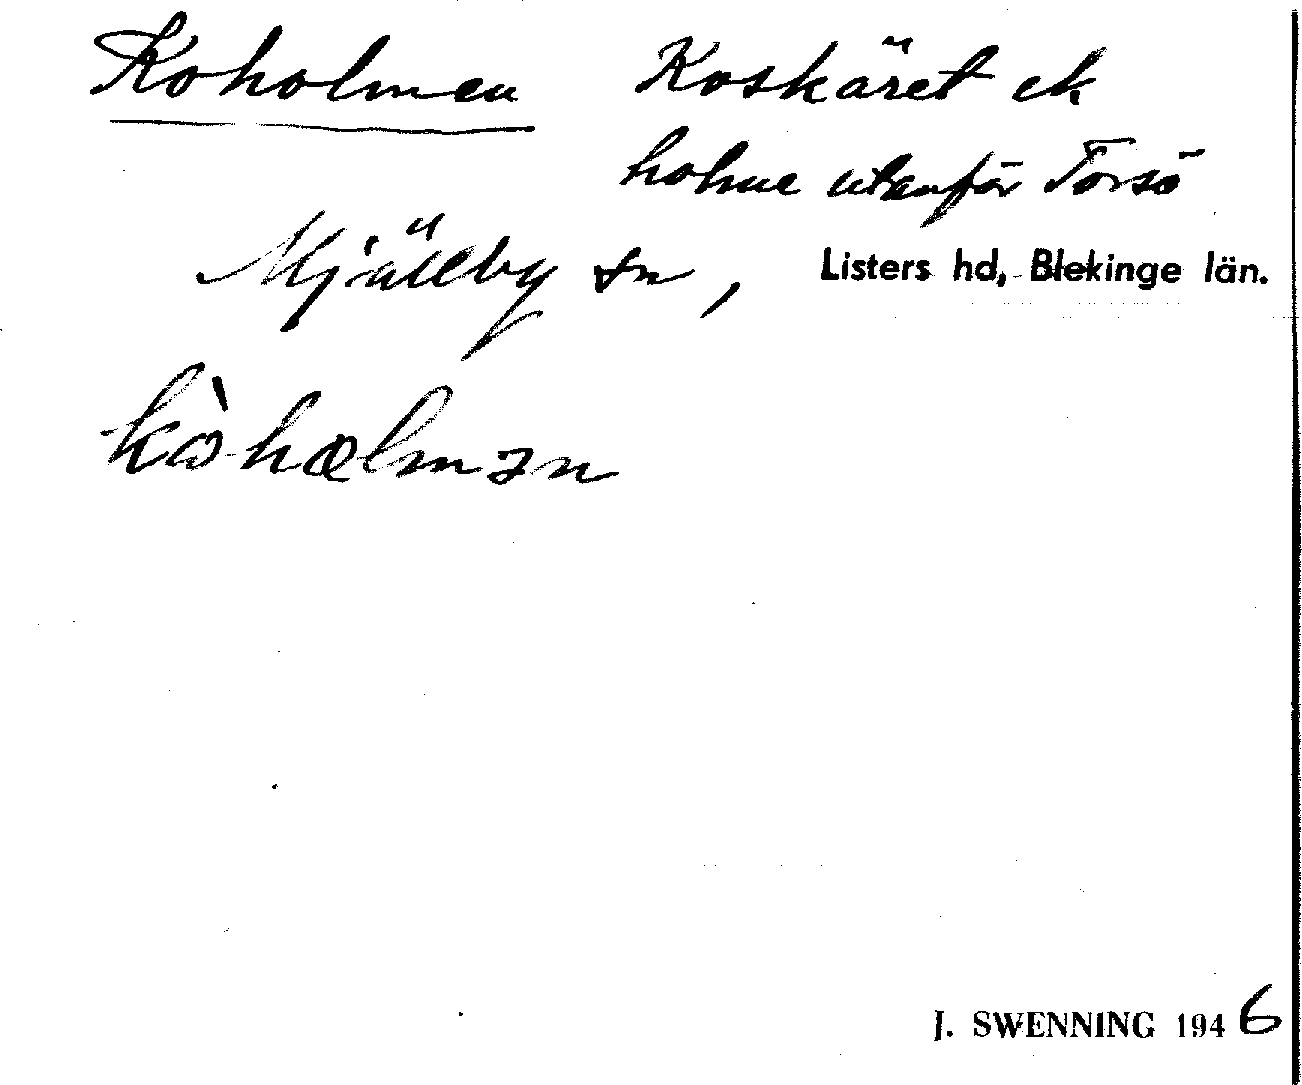 Koholmen Koskäret ek
holme utanför Torsö
Mjällby sn, Listers hd, Blekinge län.
kòhɷlmən
J. SWENNING 1946